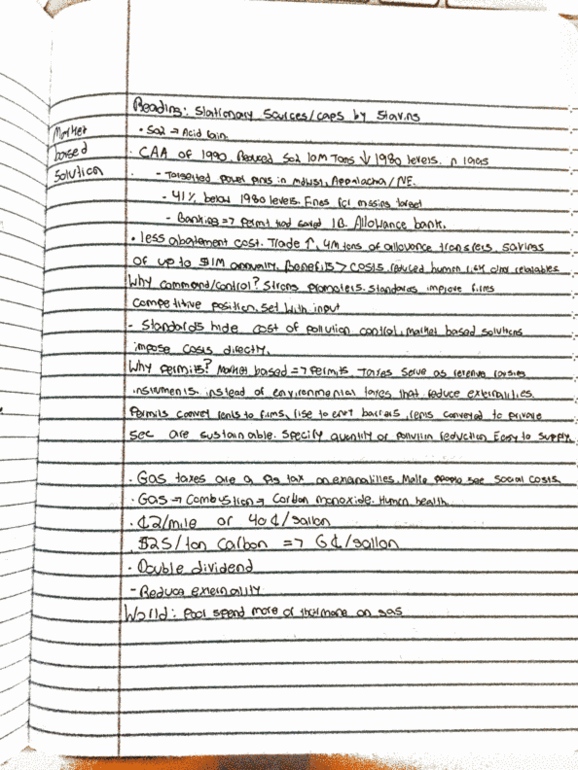 Reading: Stationary Sources/caps by Stavins
Market
based
Solution
• SO2 → Acid rain.
CAA of 1990. Reduced SO2 10M Tons ↓ 1980 levels. n
- Targetted power plants in midwst, Appalacha / NE.
- 41% below 1980 levels. Fines for missing target
- Banking => permit had saved 1B. Allowance bank.
• less abatement cost. Trade ↑, 4M tons of allowance transfers, savings
of up to $1M annually. Benefits > costs, reduced human
Why command/control? Strong promoters. Standards improve firms
competitive position. set with input
- Standards hide cost of pollution control, market based solutions
impose costs directly.
Why permits? Market based => Permits. Taxes serve as revenue raising
instruments. instead of environmental taxes that reduce externalities.
Permits convey rents to firms, rise to entry barriers, rents conveyed to private
sec are sustainable. Specify quantity of pollution reduction. Easy to supply.
• Gas taxes are a tax on externalities. Make people see social costs.
• Gas → Combustion → Carbon monoxide. Human health.
• ¢2/mile or 40¢/gallon
$25/ton carbon => 6¢/gallon
• Double dividend
- Reduce externality
World: Poor spend more of on gas